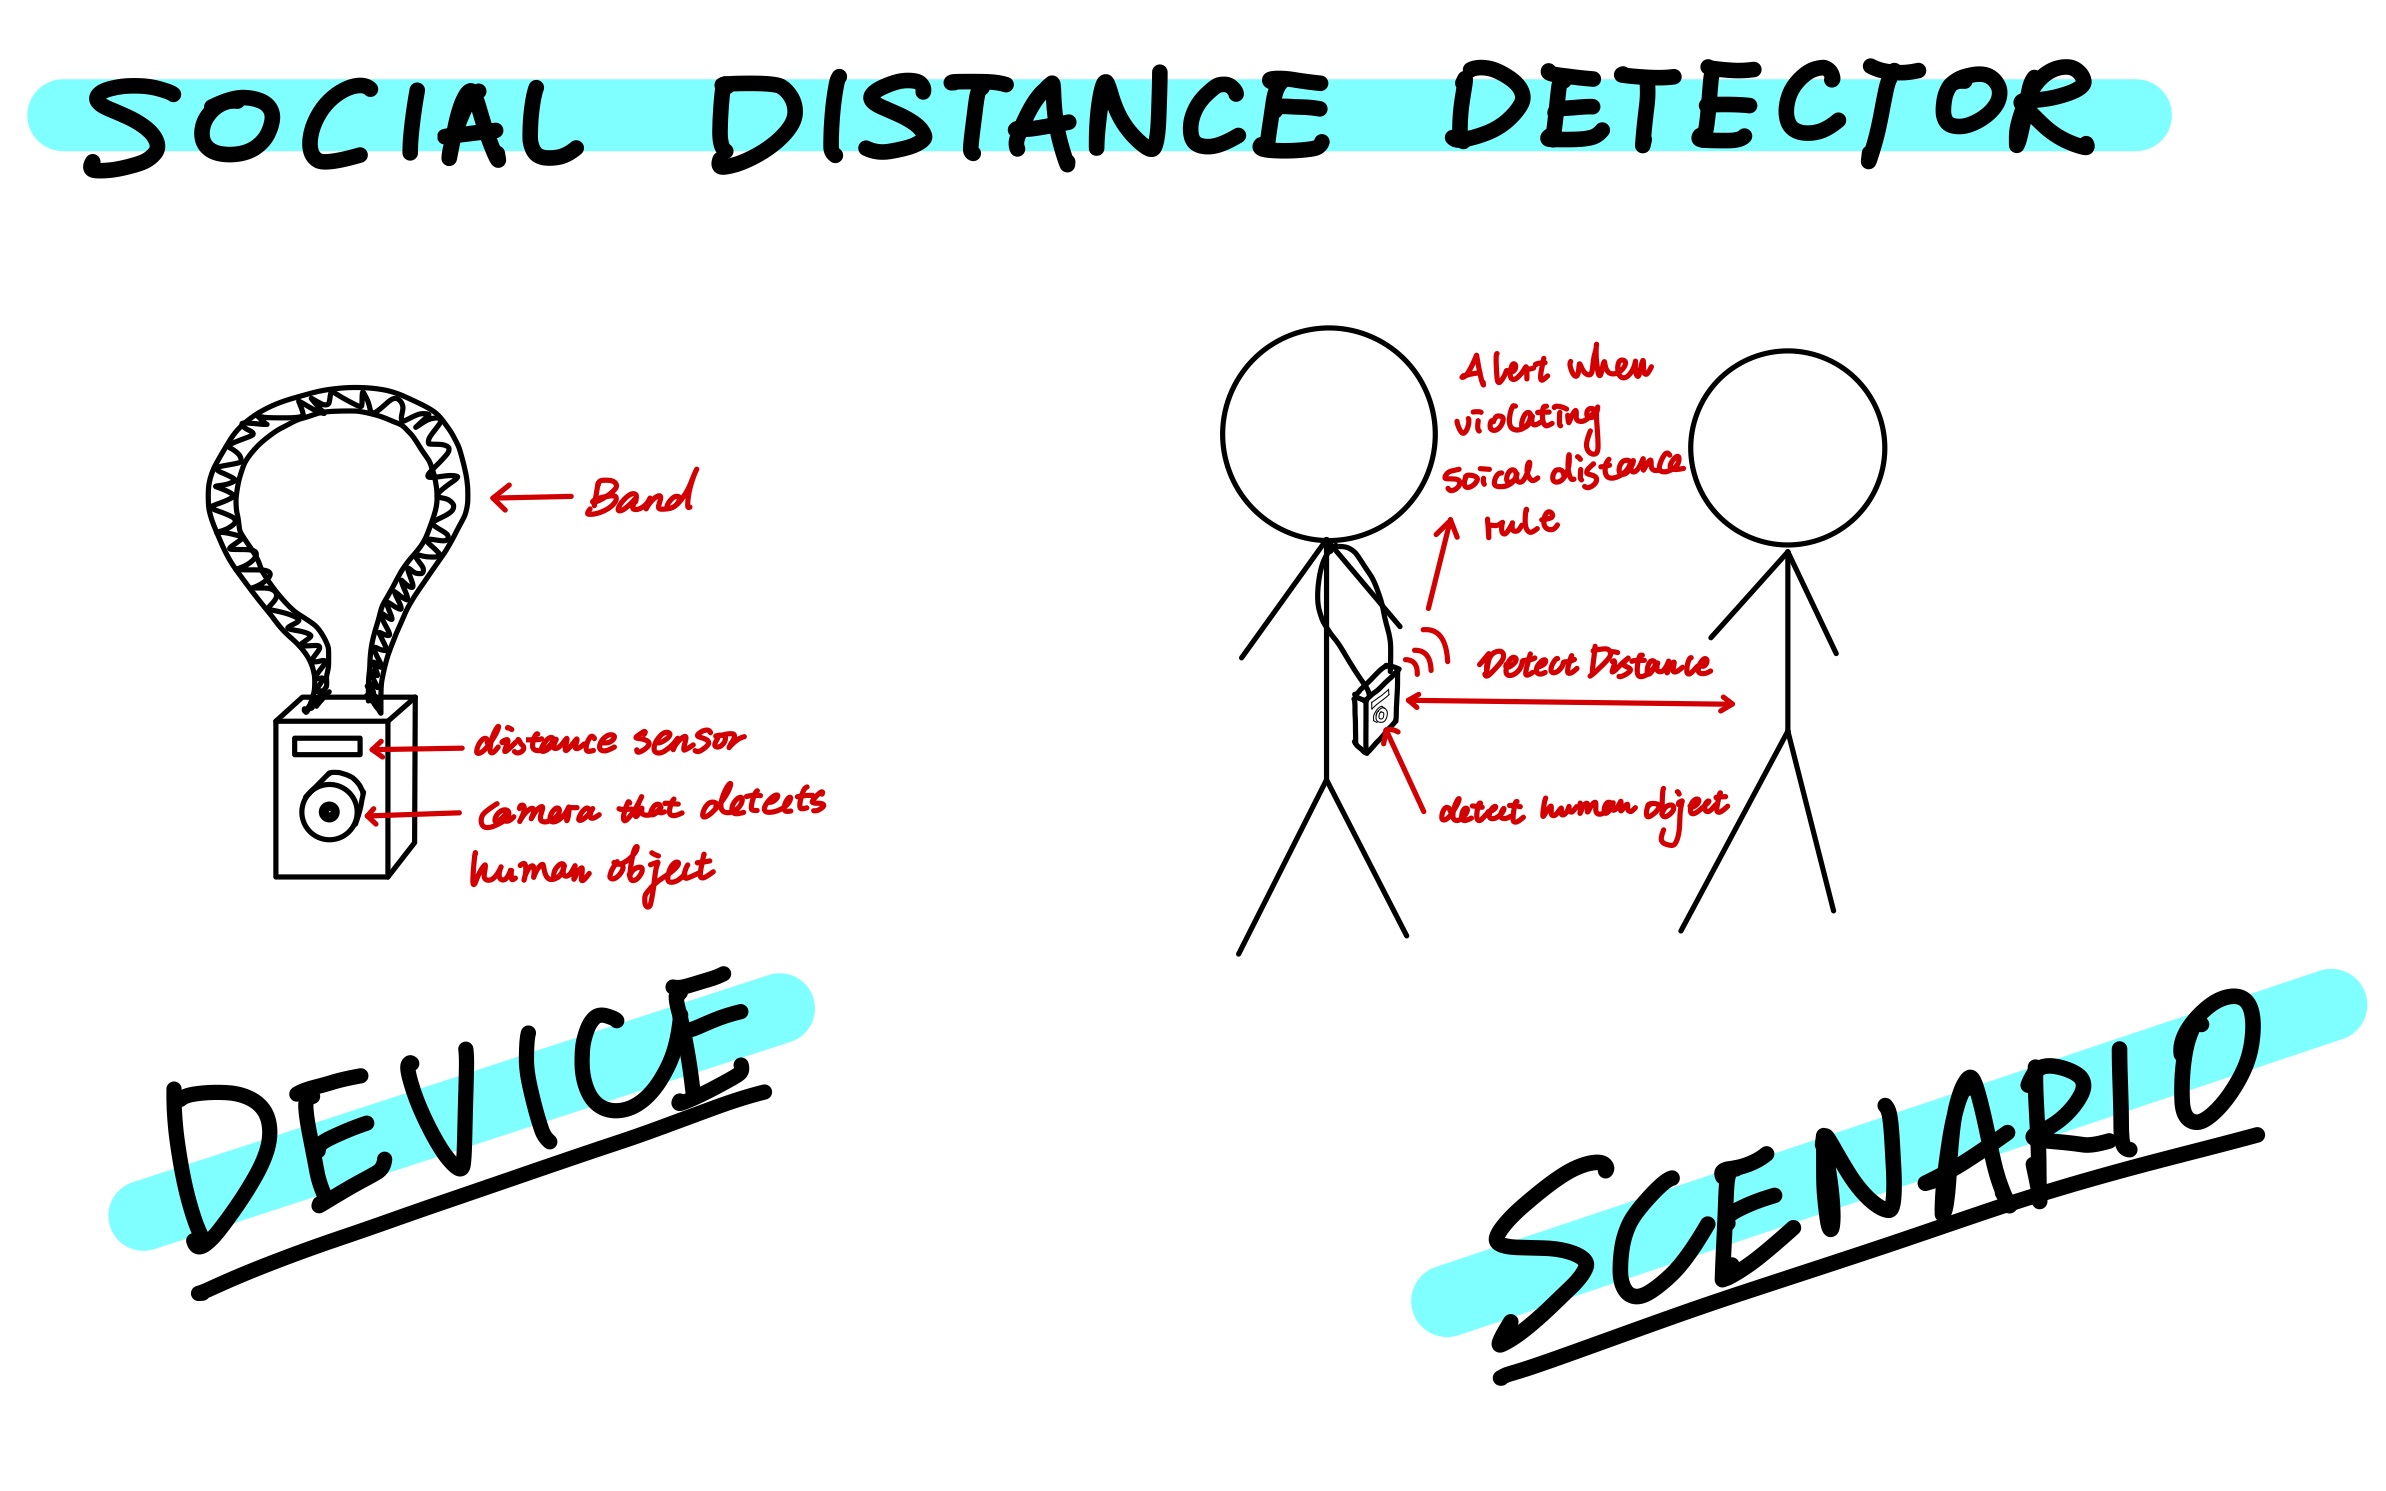 SOCIAL DISTANCE DETECTOR
Band
distance sensor
camera that detects
human object
DEVICE
Alert when
violating
soical distance
rule
Detect Distance
detect human object
SCENARIO